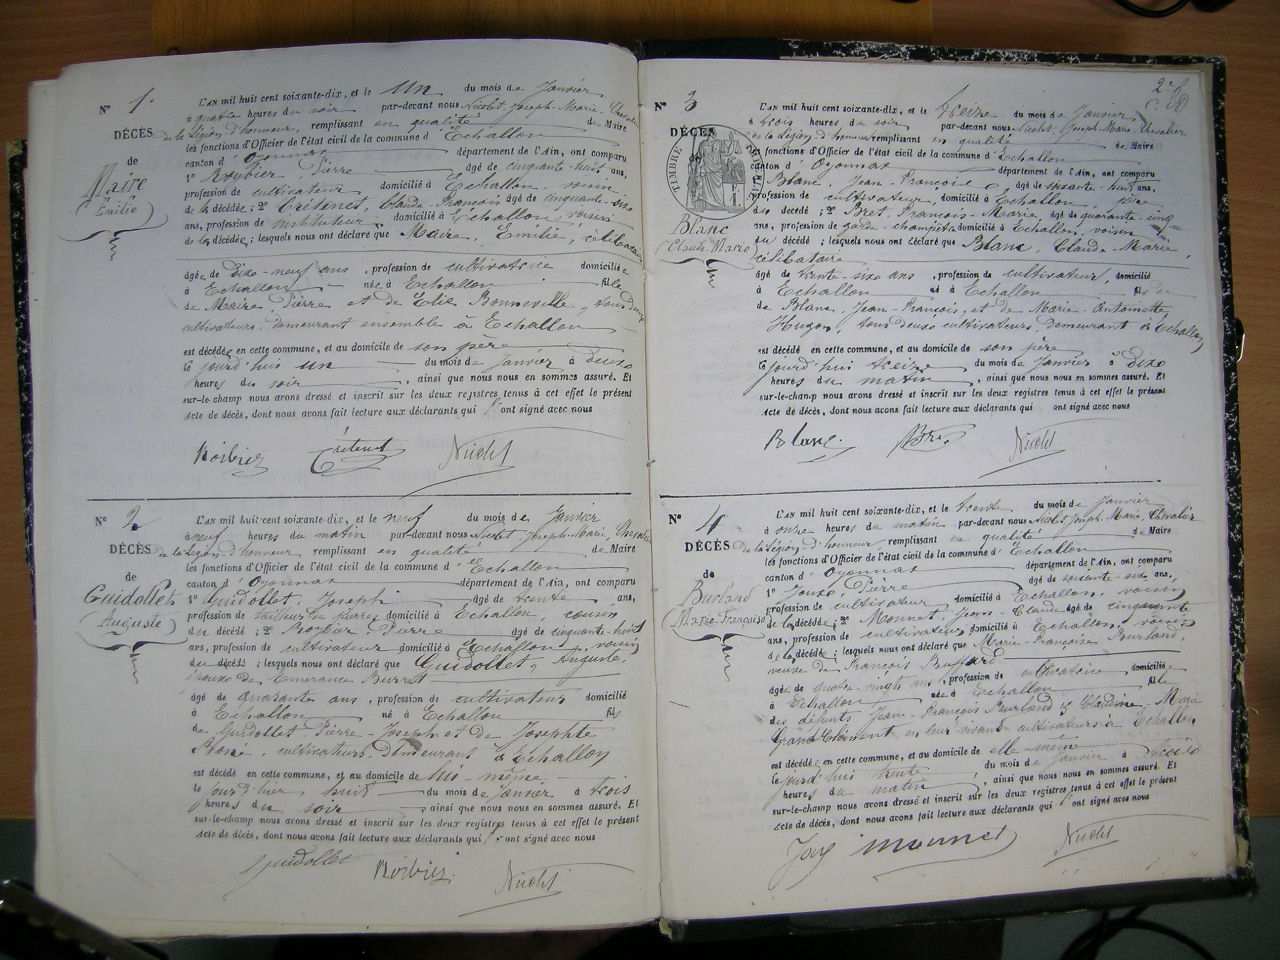 N° 1.
DÉCÈS
de
Maire
Emilie
L'an mil huit cent soixante-dix, et le Un du mois de Janvier
à quatre heures du soir par-devant nous Nicolet, Joseph-Marie, Chevalier
de la Légion d'honneur, remplissant en qualité de Maire
les fonctions d'Officier de l'état civil de la commune d'Echallon
canton d'Oyonnax département de l'Ain, ont comparu
1° Rorbier Pierre âgé de cinquante-huit ans,
profession de cultivateur domicilié à Echallon, voisin
de la décédée; 2° Crétenet, Claude-François âgé de cinquante-
ans, profession de instituteur domicilié à Echallon, voisin
de la décédée; lesquels nous ont déclaré que Maire, Emilie, célibataire
âgée de dix-neuf ans, profession de cultivatrice domiciliée
à Echallon née à Echallon fille
de Maire, Pierre et de Elie Bonneville, tous deux
cultivateurs, demeurant ensemble à Echallon
est décédée en cette commune, et au domicile de son père
le jourd'hui un du mois de Janvier à deux
heures du soir, ainsi que nous nous en sommes assuré. Et
sur-le-champ nous avons dressé et inscrit sur les deux registres tenus à cet effet le présent
acte de décès, dont nous avons fait lecture aux déclarants qui l'ont signé avec nous
Rorbier Crétenet Nicolet
N° 2.
DÉCÈS
de
Guidollet
Auguste
L'an mil huit cent soixante-dix, et le neuf du mois de Janvier
à neuf heures du matin par-devant nous Nicolet, Joseph-Marie, Chevalier
de la Légion d'honneur remplissant en qualité de Maire
les fonctions d'Officier de l'état civil de la commune d'Echallon
canton d'Oyonnax département de l'Ain, ont comparu
1° Guidollet, Joseph âgé de trente ans,
profession de tailleur de pierres domicilié à Echallon, cousin
du décédé; 2° Rorbier Pierre âgé de cinquante-huit
ans, profession de cultivateur domicilié à Echallon, voisin
du décédé; lesquels nous ont déclaré que Guidollet, Auguste,
époux de Emerance Burret
âgé de quarante ans, profession de cultivateur domicilié
à Echallon né à Echallon fils
de Guidollet Pierre-Joseph et de Josephte
cultivateurs demeurant à Echallon
est décédé en cette commune, et au domicile de lui-même
le jour d'hier, huit du mois de Janvier à trois
heures du soir, ainsi que nous nous en sommes assuré. Et
sur-le-champ nous avons dressé et inscrit sur les deux registres tenus à cet effet le présent
acte de décès, dont nous avons fait lecture aux déclarants qui l'ont signé avec nous
Guidollet Rorbier Nicolet
N° 3
DÉCÈS
TIMBRE IMPÉRIAL
Blanc
Claude Marie
L'an mil huit cent soixante-dix, et le treize du mois de Janvier
à trois heures du soir par-devant nous Nicolet, Joseph-Marie, Chevalier
de la Légion d'honneur remplissant en qualité de Maire
les fonctions d'Officier de l'état civil de la commune d'Echallon
canton d'Oyonnax département de l'Ain, ont comparu
Blanc, Jean-François, âgé de soixante-huit ans,
profession de cultivateur, domicilié à Echallon, père
du décédé; 2° Bret, François-Marie, âgé de quarante-cinq
ans, profession de garde champêtre, domicilié à Echallon, voisin
du décédé; lesquels nous ont déclaré que Blanc, Claude Marie,
célibataire
âgé de trente-six ans, profession de cultivateur, domicilié
à Echallon né à Echallon fils
de Blanc, Jean-François, et de Marie-Antoinette
Hugon, tous deux cultivateurs demeurant à Echallon
est décédé en cette commune, et au domicile de son père
le jourd'hui treize du mois de Janvier à dix
heures du matin, ainsi que nous nous en sommes assuré. Et
sur-le-champ nous avons dressé et inscrit sur les deux registres tenus à cet effet le présent
acte de décès, dont nous avons fait lecture aux déclarants qui ont signé avec nous
Blanc. Bret Nicolet
N° 4
DÉCÈS
de
Burland
Marie-Françoise
L'an mil huit cent soixante-dix, et le trente du mois de Janvier
à onze heures du matin par-devant nous Nicolet, Joseph-Marie, Chevalier
de la Légion d'honneur remplissant en qualité de Maire
les fonctions d'Officier de l'état civil de la commune d'Echallon
canton d'Oyonnax département de l'Ain, ont comparu
1° Joux, Pierre âgé de soixante-six ans,
profession de cultivateur domicilié à Echallon, voisin
de la décédée; 2° Monnet, Jean-Claude âgé de cinquante
ans, profession de cultivateur domicilié à Echallon, voisin
de la décédée; lesquels nous ont déclaré que Marie-Françoise Burland,
veuve de François Buffard
âgée de quatre-vingts ans, profession de cultivatrice domiciliée
à Echallon née à Echallon fille
des défunts Jean-François Burland & Claudine-Marie
Grand-Clément en leur vivant cultivateurs à Echallon
est décédée en cette commune, et au domicile de elle-même
le jourd'hui trente du mois de Janvier à
heures du matin, ainsi que nous nous en sommes assuré. Et
sur-le-champ nous avons dressé et inscrit sur les deux registres tenus à cet effet le présent
acte de décès, dont nous avons fait lecture aux déclarants qui l'ont signé avec nous
Joux Monnet Nicolet